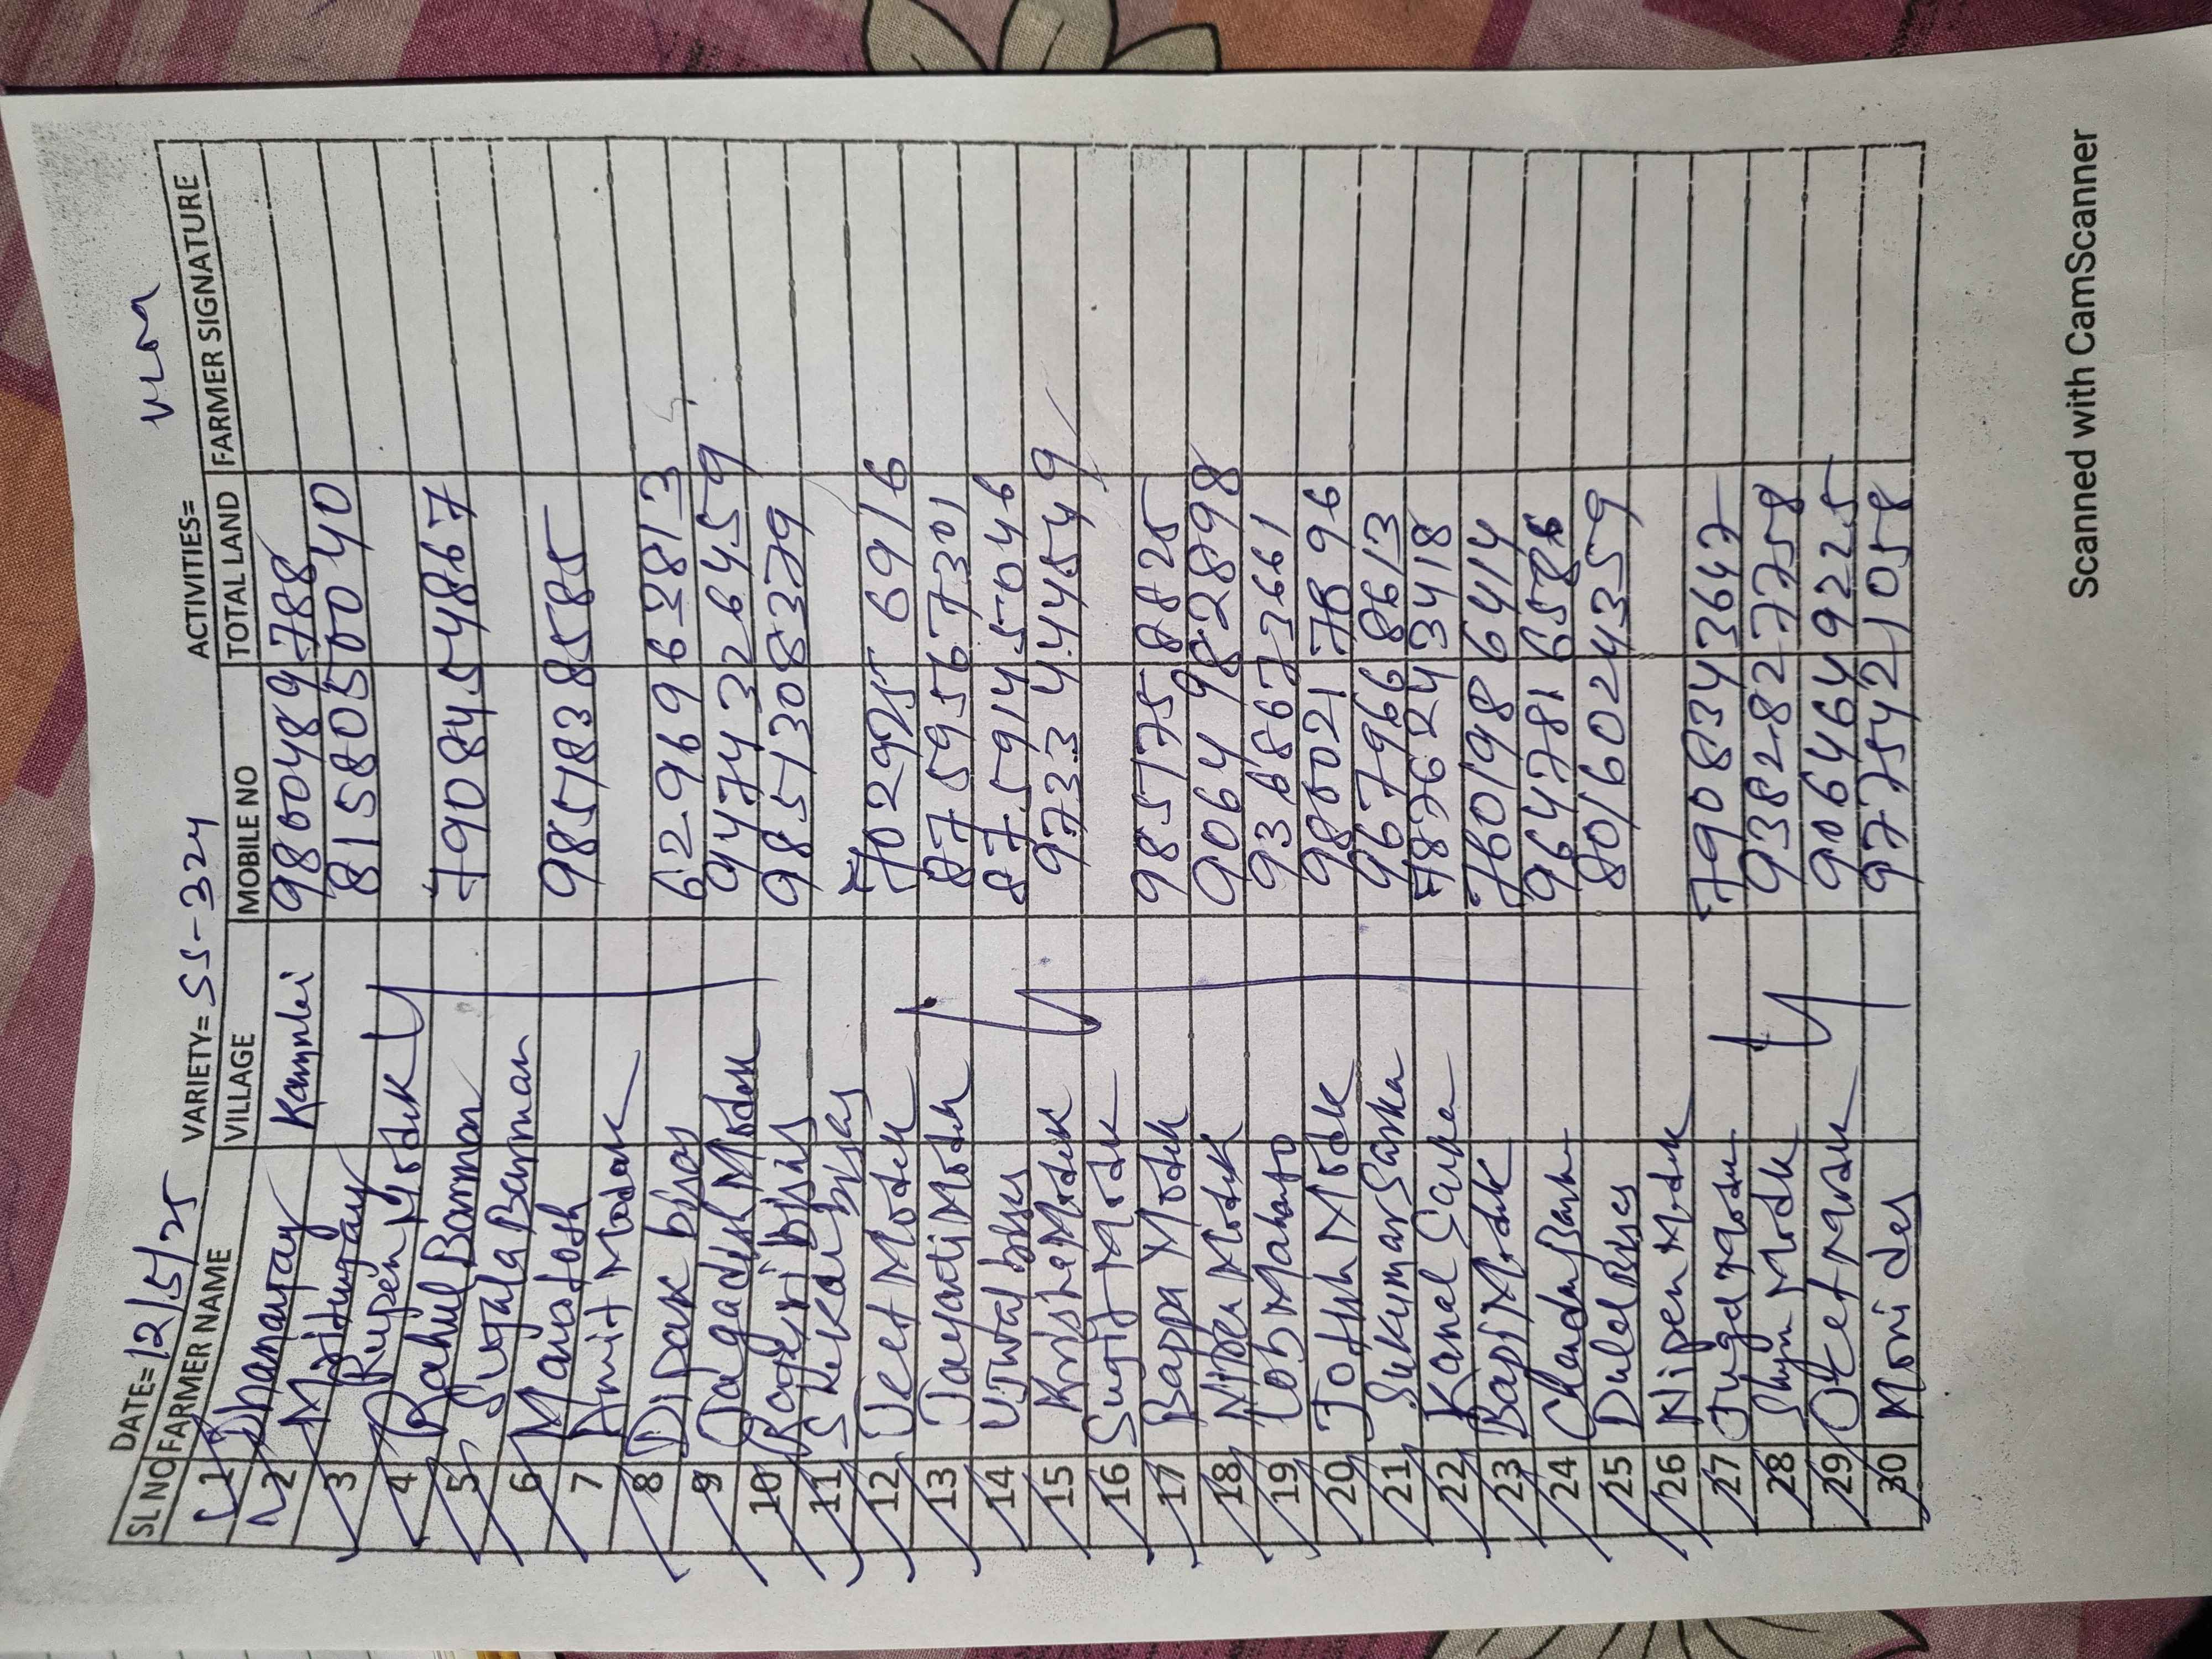 DATE= 12/5/25 VARIETY= SS-324 ACTIVITIES= VLM
SL NO FARMER NAME VILLAGE MOBILE NO TOTAL LAND FARMER SIGNATURE
1 Dhananjay Kamnlei 9800489788
2 Mritunjay 8158050040
3 Rupen Modak
4 Rahul Barman 7908454867
5 Sujala Barman
6 Manotosh 9851838585
7 Amit Modak
8 Dipak biswas 6296963813
9 Jagadish Modak 9474326459
10 Bapi biswas 9851308379
11 Sekar biswas
12 Jeet Modak 7029256916
13 Jayanti Modak 8759567301
14 Ujwal biswas 8759145046
15 Krishna Modak 9733444549
16 Sujit Modak
17 Bappa Modak 9851758825
18 Nipen Modak 9064982898
19 Lob Mahato 9368673661
20 Jotish Modak 9800217896
21 Sukumar Sarkar 9679668613
22 Kamal Sarkar 7876243418
23 Bapi Modak 7601986414
24 Chandan Barman 9647816586
25 Dulal Biswas 8016024359
26 Nipen Modak
27 Jugal Modak 7908343647
28 Shyam Modak 9382827758
29 Modak 9064649225
30 Moni das 9775421058
Scanned with CamScanner